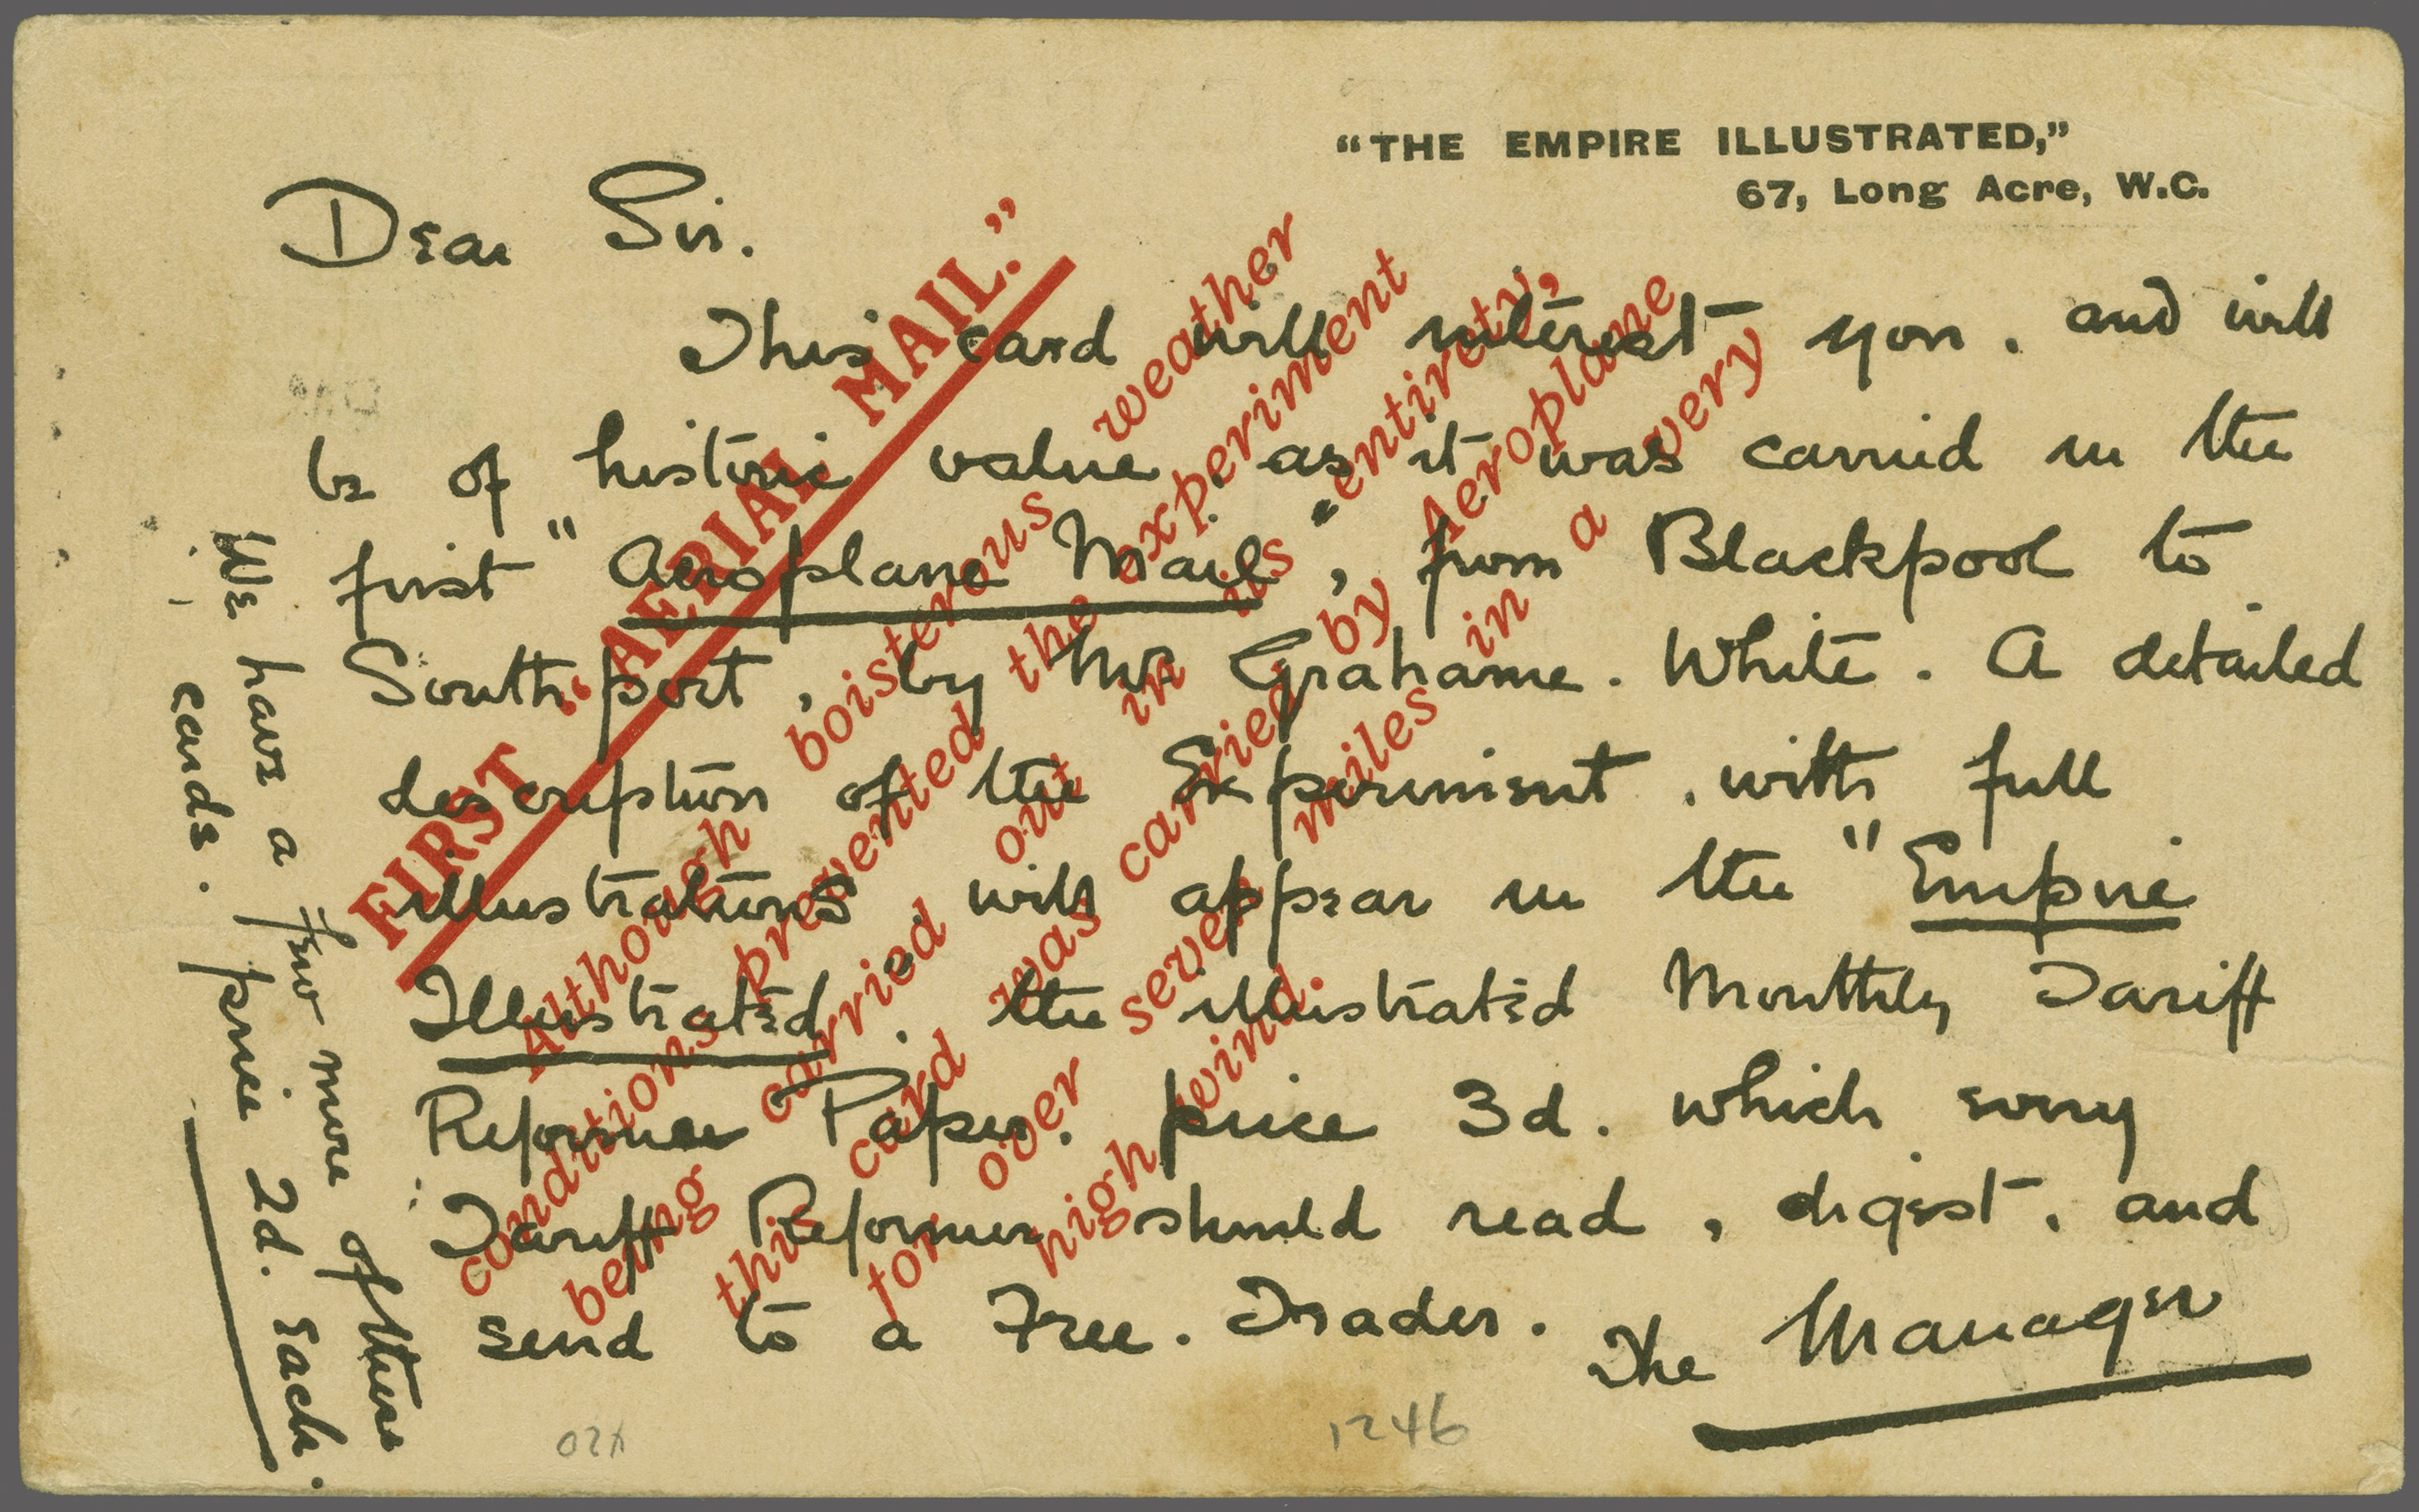 "THE EMPIRE ILLUSTRATED,"
67, Long Acre, W.C.
Dear Sir.
This card will interest you. and will
be of historic value, as it was carried in the
first "Aeroplane Mail", from Blackpool to
Southport, by Mr Grahame. White. A detailed
description of the Experiment. with full
illustrations. will appear in the "Empire
Illustrated". the illustrated Monthly Tariff
Reformer Paper. price 3d. which every
Tariff Reformer should read, digest, and
send to a Free. Trader.
The Manager
We have a few more of these
cards. price 2d. each.
FIRST "AERIAL MAIL."
Although boisterous weather
conditions prevented the experiment
being carried out in its entirety,
this card was carried by Aeroplane
for over seven miles in a very
high wind.
1246